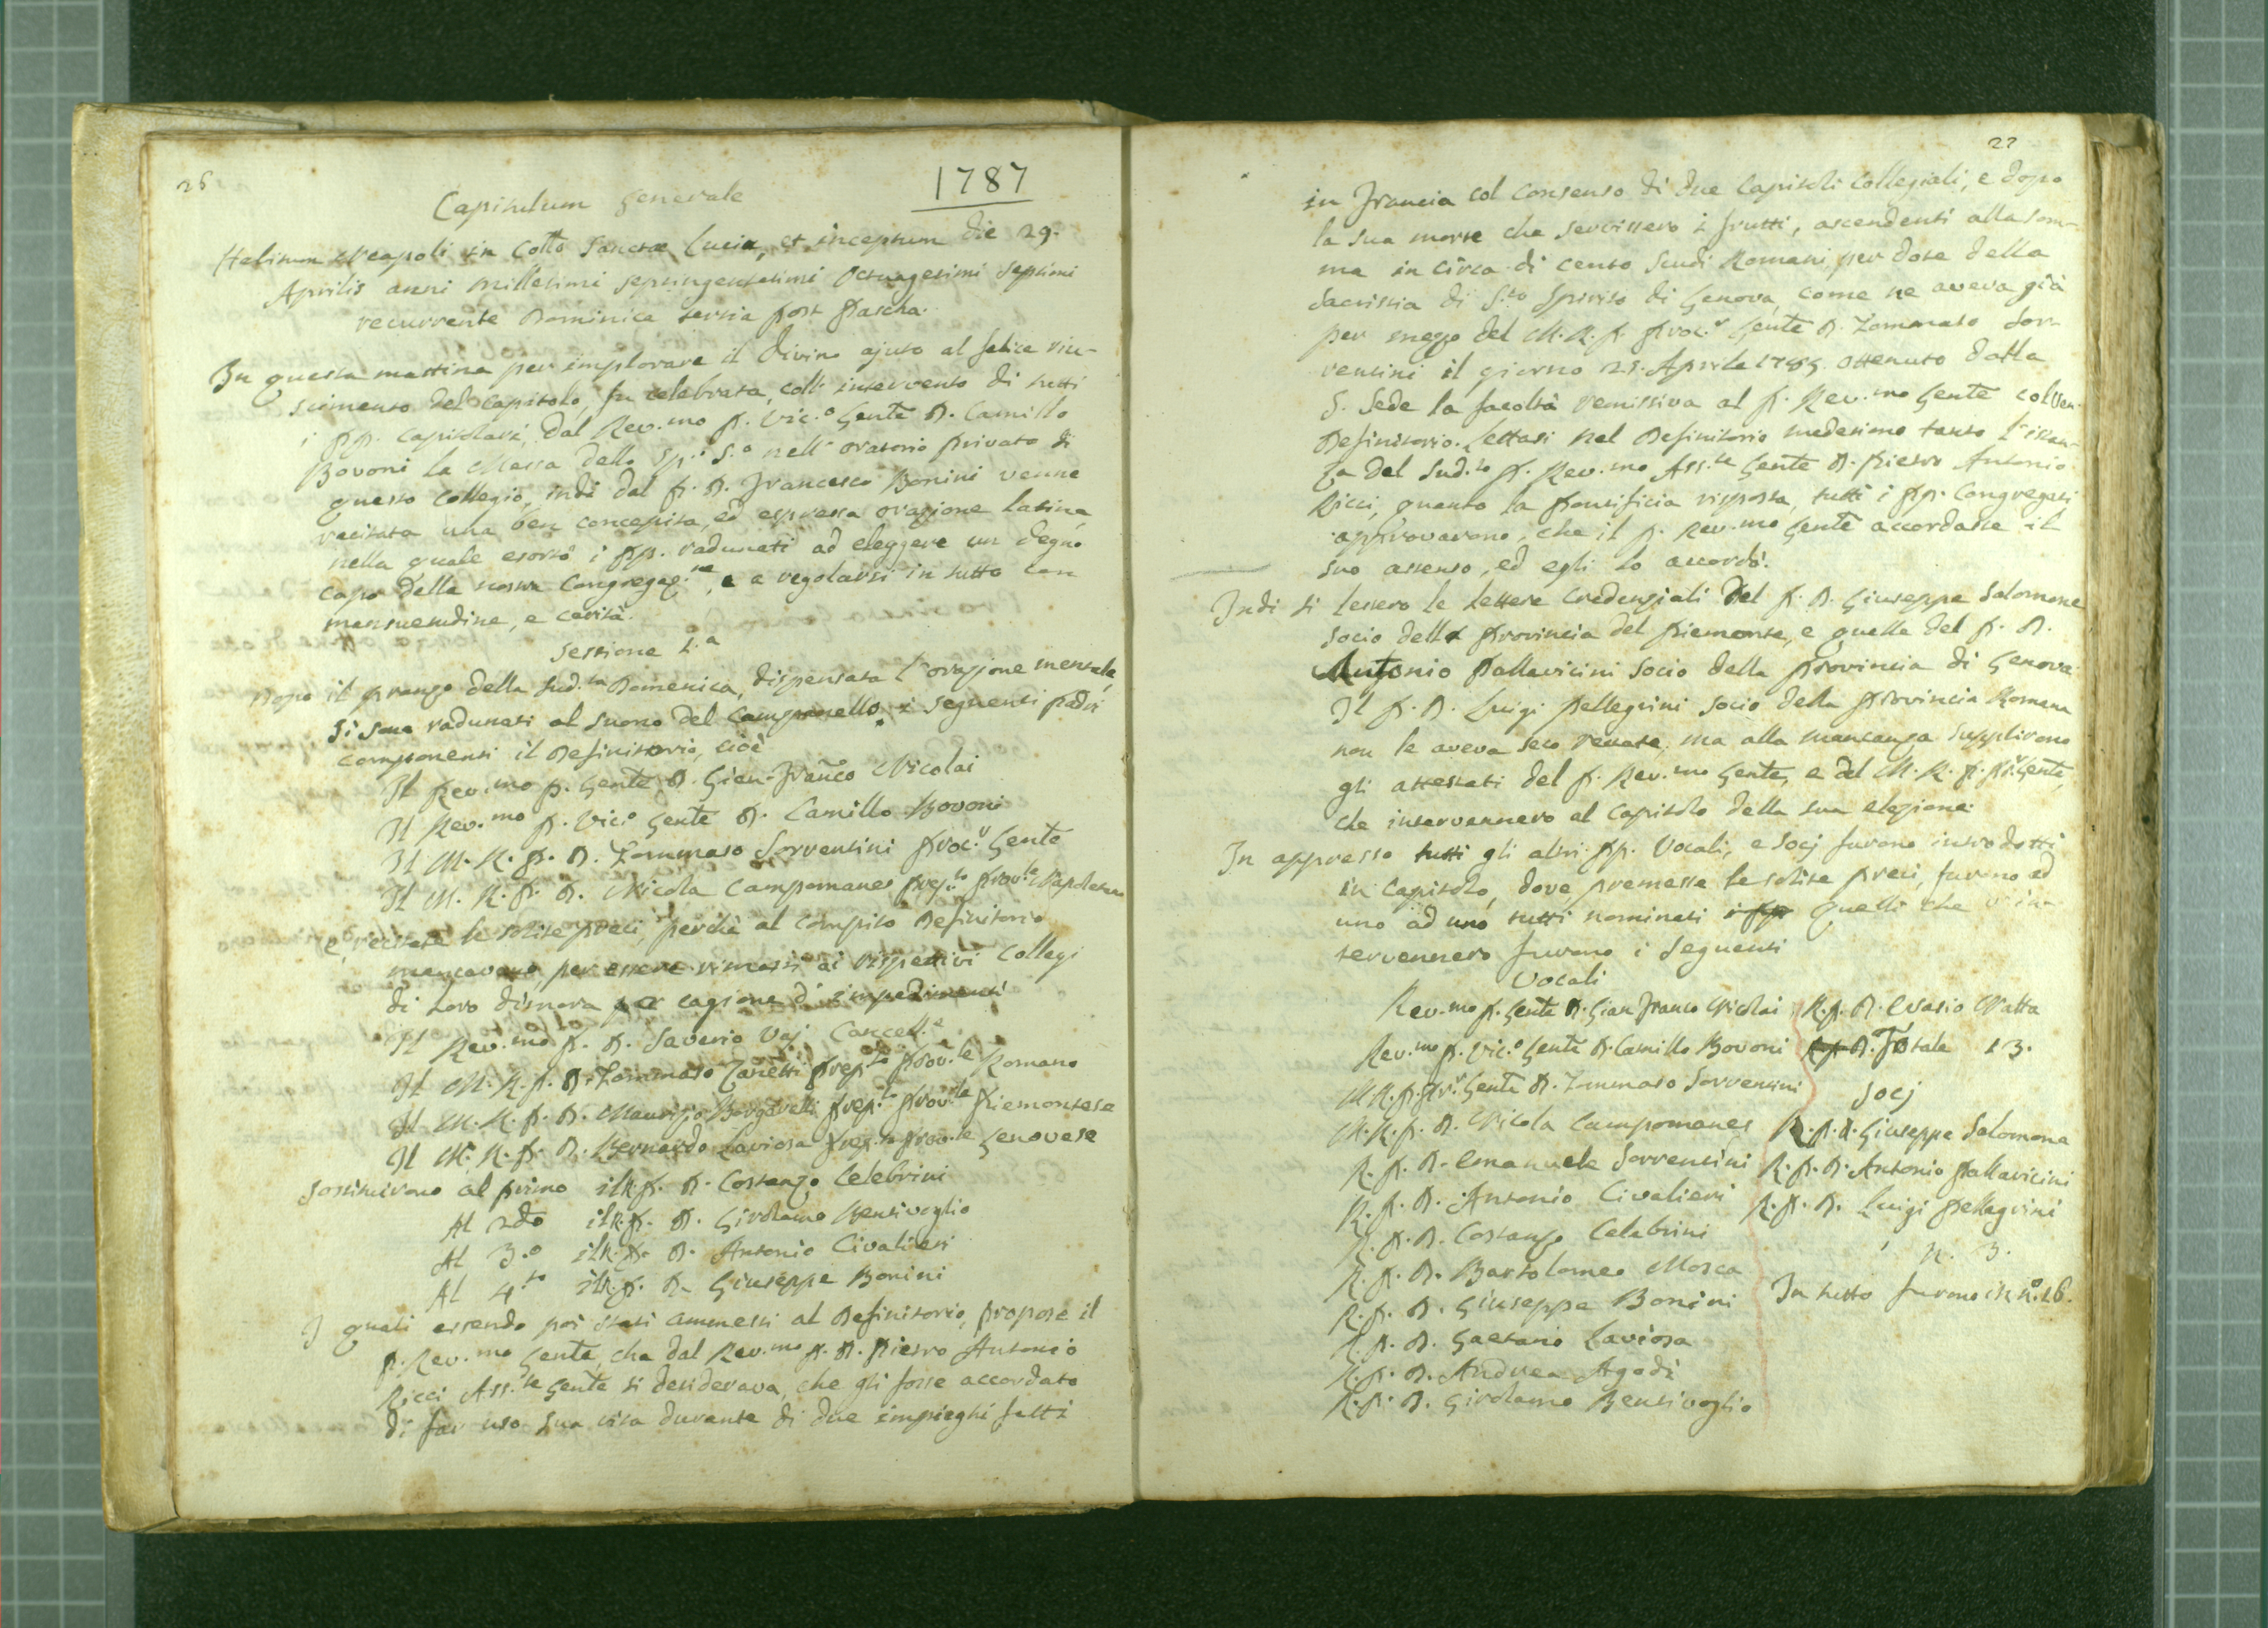 26
1787
Capitulum Generale
Habitum Neapoli in Collo Sanctae Luciae, et inceptum die 29.
Aprilis anni millesimi septingentesimi octuagesimi septimi
recurrente Dominica tertia post Pascha.
In questa mattina per implorare il divino ajuto al felice riu-
scimento del Capitolo, fu celebrata, coll' intervento di tutti
i PP. Capitolari, dal Rev.mo P. Vic.o Gente D. Camillo
Bovoni la Messa dello Sp.o S.o nell' oratorio privato di
questo Collegio, indi dal P. D. Francesco Bonini venne
recitata una ben concepita, ed espressa orazione latina,
nella quale esortò i PP. radunati ad eleggere un degno
capo della nostra Congregaz.ne, e a regolarsi in tutto con
mansuetudine, e carità.
Sessione 1.a
Dopo il pranzo della sud.ta Domenica, dispensata l'orazione mentale,
si sono radunati al suono del campanello i seguenti padri
componenti il Definitorio, cioè
Il Rev.mo P. Gente D. Gian-Franco Nicolai
Il Rev.mo P. Vic.o Gente D. Camillo Bovoni
Il M. R. P. D. Tommaso Sorrentini Proc.r Gente
Il M. R. P. D. Nicola Campomanes Prep.to Prov.le Napoletano
e recitate le solite preci, perchè al compito Definitorio
mancavano, per essere rimasti ai rispettivi Collegi
di loro dimora per cagione d' impedimenti
Il Rev.mo P. D. Saverio Vaj Cancell.e
Il M. R. P. D. Tommaso Zanetti Prep.to Prov.le Romano
Il M. R. P. D. Maurizio Borgarelli Prep.to Prov.le Piemontese
Il M. R. P. D. Bernardo Laviosa Prep.to Prov.le Genovese
sostituirono al primo il R. P. D. Costanzo Celebrini
Al 2do il R. P. D. Girolamo Bentivoglio
Al 3.o il R. P. D. Antonio Civalieri
Al 4.to il R. P. D. Giuseppe Bonini
I quali essendo poi stati ammessi al Definitorio, propose il
P. Rev.mo Gente, che dal Rev.mo P. D. Pietro Antonio
Ricci Ass.te Gente si desiderava, che gli fosse accordato
di far uso sua vita durante di due impieghi fatti
27
in Francia col consenso di due Capitoli Collegiali, e dopo
la sua morte che servissero i frutti, ascendenti alla som-
ma in circa di cento Scudi Romani, per dote della
Sacristia di S.to Spirito di Genova, come ne aveva già
per mezzo del M. R. P. Proc.r Gente D. Tommaso Sor-
rentini il giorno 25. Aprile 1785. ottenuto dalla
S. Sede la facoltà remissiva al P. Rev.mo Gente col Ven.
Definitorio. Lettasi nel Definitorio medesimo tanto l'istan-
za del sud.to P. Rev.mo Ass.te Gente D. Pietro Antonio
Ricci, quanto la Pontificia risposta, tutti i PP. Congregati
approvarono, che il P. Rev.mo Gente accordasse il
suo assenso, ed egli lo accordò.
Indi si lessero le lettere credenziali del P. D. Giuseppe Salomone
socio della Provincia del Piemonte, e quelle del P. D.
Antonio Pallavicini socio della Provincia di Genova
Il P. D. Luigi Pellegrini socio della Provincia Romana
non le aveva seco recate, ma alla mancanza supplirono
gli attestati del P. Rev.mo Gente, e del M. R. P. Pr.r Gente,
che intervennero al Capitolo della sua elezione.
In appresso tutti gli altri PP. Vocali, e Socj furono introdotti
in Capitolo, dove, premesse le solite preci, furono ad
uno ad uno tutti nominati i PP. Quelli che v'in-
tervennero furono i seguenti
Vocali
Rev.mo P. Gente D. Gian Franco Nicolai
Rev.mo P. Vic.o Gente D. Camillo Bovoni
M. R. P. Pr.r Gente D. Tommaso Sorrentini
M. R. P. D. Nicola Campomanes
R. P. D. Emanuele Sorrentini
R. P. D. Antonio Civalieri
R. P. D. Costanzo Celebrini
R. P. D. Bartolomeo Mosca
R. P. D. Giuseppe Bonini
R. P. D. Gaetano Laviosa
R. P. D. Andrea Agodi
R. P. D. Girolamo Bentivoglio
R. P. D. Evasio Natta
R. P. D. Totale 13.
Socj
R. P. D. Giuseppe Salomone
R. P. D. Antonio Pallavicini
R. P. D. Luigi Pellegrini
N. 3.
In tutto furono in n.o 16.